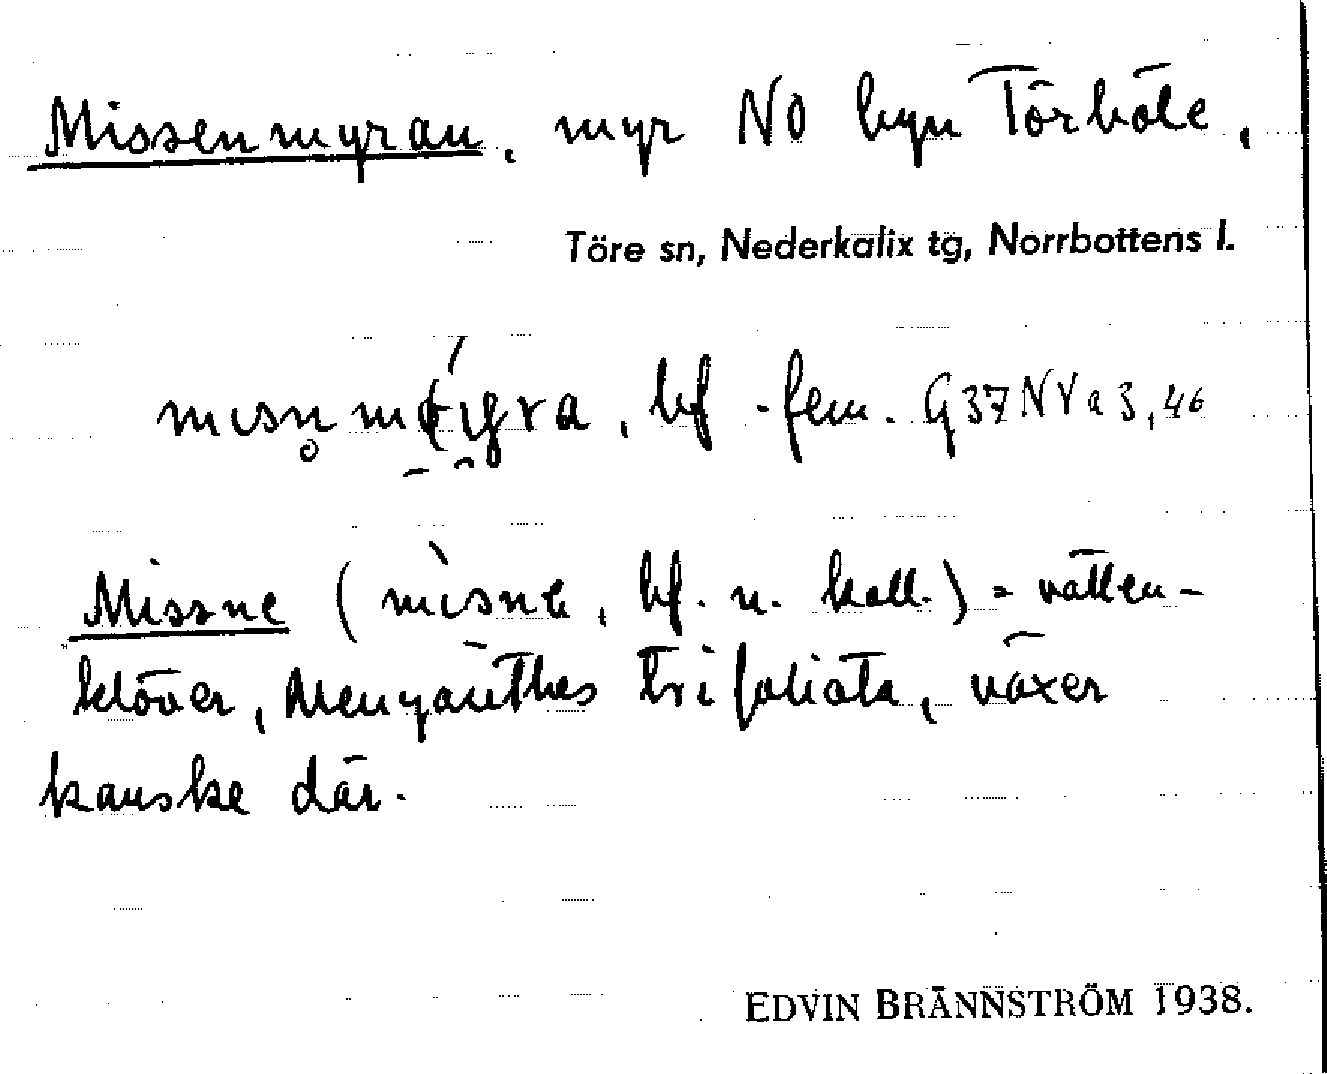 Missenmyran, myr NO byn Törböle,
Töre sn, Nederkalix tg, Norrbottens l.
bf. fem. G37NVa3,46
Missne (misnε, bf. n. koll.) = vatten-
klöver, Menyanthes trifoliata, växer
kanske där.
EDVIN BRÄNNSTRÖM 1938.